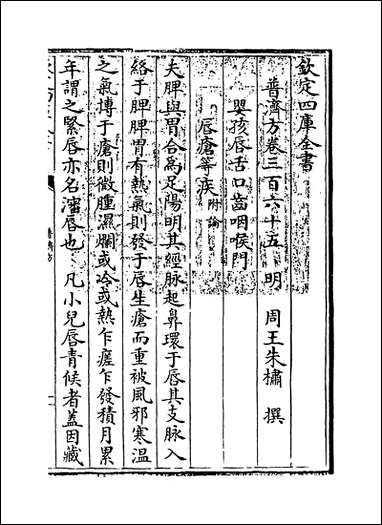 欽定四庫全書
普濟方卷三百六十五 明 周王朱橚 撰
嬰孩唇舌口齒咽喉門
唇瘡等疾附論
夫脾與胃合為足陽明其經脉起鼻環于唇其支脉入
絡于脾脾胃有熱氣則發于唇生瘡而重被風邪寒溫
之氣搏于瘡則微腫濕爛或冷或熱乍瘥乍發積月累
年謂之緊唇亦名瀋唇也 凡小兒唇青候者盖因藏
普濟方